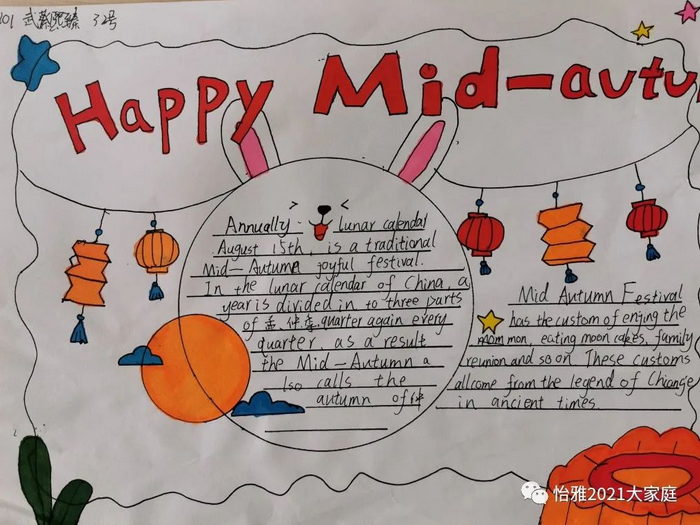 武 臻 32号
Happy Mid-autu
Annually. lunar calendar
August 15th, is a traditional
Mid-Autumn joyful festival.
In the lunar calendar of China, a
year is divided in to three parts
of 孟 仲 季 quarter again every
quarter, as a result
the Mid-Autumn a
lso calls the
autumn of 仲
Mid Autumn Festival
has the custom of enjing the
mon, eating moon cakes, family
reunion and so on. These customs
all come from the legend of Change
in ancient times.
怡雅2021大家庭